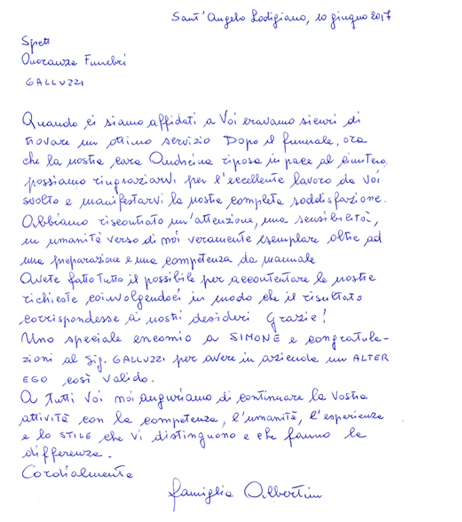 Sant'Angelo Lodigiano, 10 giugno 2017
Spett
Onoranze Funebri
GALLUZZI
Quando ci siamo affidati a Voi eravamo sicuri di
trovare un ottimo servizio Dopo il funerale, ora
che la nostra cara Andreina riposa in pace al cimitero,
possiamo ringraziarvi per l'eccellente lavoro da voi
svolto e manifestarvi la nostra completa soddisfazione.
Abbiamo riscontrato un'attenzione, una sensibilità,
un umanità verso di noi veramente esemplare oltre ad
una preparazione e una competenza da manuale
Avete fatto tutto il possibile per accontentare le nostre
richieste coinvolgendoci in modo che il risultato
corrispondesse ai nostri desideri Grazie!
Uno speciale encomio a SIMONE e congratula-
zioni al Sig. GALLUZZI per avere in azienda un ALTER
EGO così valido.
A tutti Voi noi auguriamo di continuare la Vostra
attività con la competenza, l'umanità, l'esperienza
e lo STILE che vi distinguono e che fanno la
differenza.
Cordialmente
famiglia Albertin